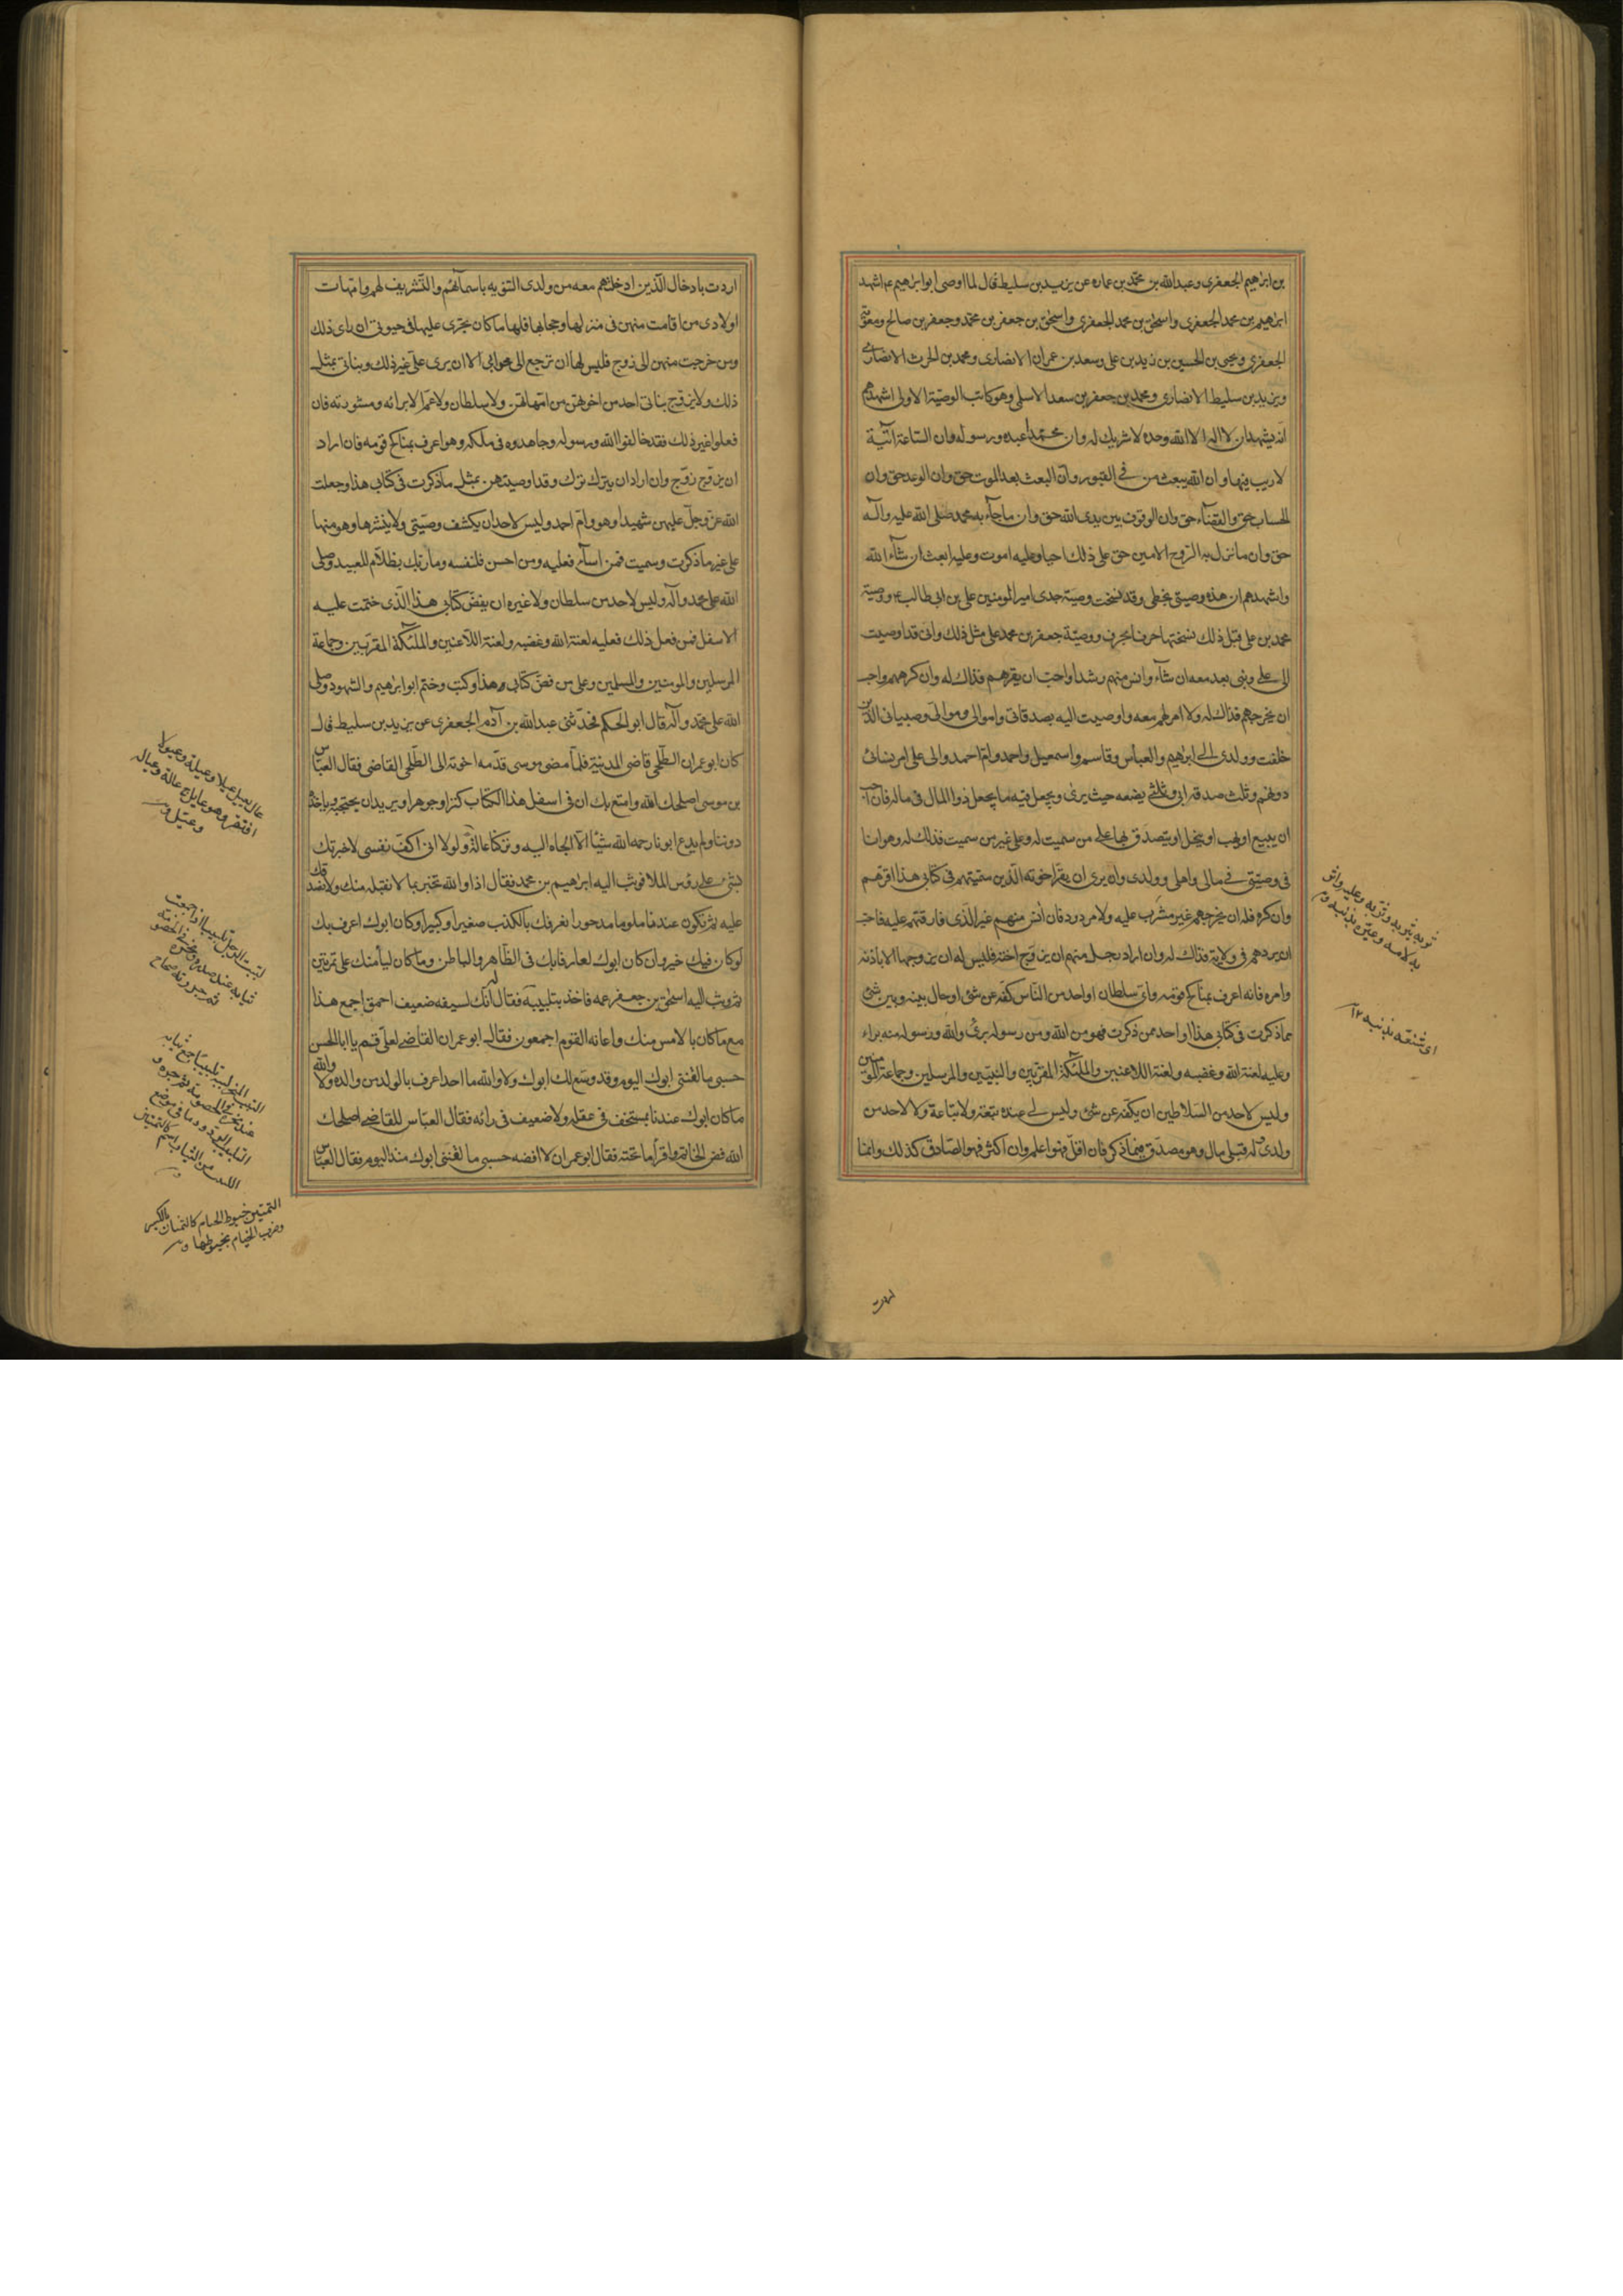 بن ابراهيم الجعفرى وعبدالله بن محمد بن عماره عن يزيد بن سليط قال لما اوصى ابوابراهيم ع اشهد
ابراهيم بن محمد الجعفرى واسحق بن محمد الجعفرى واسحق بن جعفر بن محمد وجعفر بن صالح ومعوية
الجعفرى ويحيى بن الحسين بن زيد بن على وسعد بن عمران الانصارى ومحمد بن الحرث الانصارى
ويزيد بن سليط الانصارى ومحمد بن جعفر بن سعد الاسلمى وهو كاتب الوصيّة الاولى اشهدهم
انّه يشهد ان لا اله الا الله وحده لا شريك له وان محمّدا عبده ورسوله وان السّاعة آتيـة
لا ريب فيها وان الله يبعث من فى القبور وانّ البعث بعد الموت حق وان الوعد حق وان
الحساب حق والقضآء حق وان الوقوف بين يدى الله حق وان ماجآء به محمد صلى الله عليه وآله
حق وان مانزل به الرّوح الامين حق على ذلك احيا وعليه اموت وعليه ابعث ان شآء الله
واشهدهم ان هذه وصيتى بخطى وقد نسخت وصية جدى اميرالمومنين على بن ابى طالب ع ووصيّة
محمد بن على قبل ذلك نسختها حرفا بحرف ووصيّة جعفر بن محمد على مثل ذلك وانى قد اوصيت
الى على وبنى بعد معه ان شآء وانس منهم رشدا واحبّ ان يقرّهم فذاك له وان كرههم واحبـ
ان يخرجهم فذاك له ولا امر لهم معه واوصيت اليه بصدقاتى واموالى وموالىّ وصبيانى الّذين
خلفت وولدى الى ابرهيم والعباس وقاسم واسمعيل واحمد وامّ احمد والى على امر نسائى
دونهم وثلث صدقة ابى وثلثى يضعه حيث يرى ويجعل فيه ما يجعل ذو المال فى ماله فان احبّ
ان يبيع او يهب او ينحل او يتصدّق بها على من سميت له وعلى غير من سميت فذلك له وهو انا
فى وصيّتى فى مالى واهلى وولدى وان يرى ان يقرّ اخوته الّذين سمّيتهم فى كتابى هذا اقرّهم
وان كره فله ان يخرجهم غير مثرّب عليه ولا مردود فان أنس منهم غير الّذى فارقتهم عليه فاحبّ
ان يردهم فى ولاية فذاك له وان اراد رجل منهم ان يزوّج اخته فليس له ان يزوجها الا باذنه
وامره فانّه اعرف بمناكح قومه واىّ سلطان او احد من النّاس كفّه عن شئ او حال بينه وبين شئ
مما ذكرت فى كتابى هذا او احد ممن ذكرت فهو من الله ومن رسوله برئ والله ورسوله منه براء
وعليه لعنة الله وغضبه ولعنة اللاعنين والملئكة المقرّبين والنبيّين والمرسلين وجماعة المؤمنين
وليس لاحد من السّلاطين ان يكفّه عن شئ وليس لى عنده تبعة ولا تباعة ولا لاحد من
ولدى له قبلى مال وهو مصدّق فيما ذكر فان اقلّ فهو اعلم وان اكثر فهو الصّادق كذلك وانما
ثربه يثربه وثرّبه وعليه واثر
به لامه وعيّره بذنبه ق م
اى شنّعه بذنبه ١٢
اردت
اردت بادخال الّذين ادخلتهم معه من ولدى التنويه باسمآئهم والتّشريف لهم وامّهات
اولادى من اقامت منهن فى منزلها وحجابها فلها ما كان يجرى عليها فى حيوتى ان راى ذلك
ومن خرجت منهن الى زوج فليس لها ان ترجع الى محوائى الا ان يرى علىّ غير ذلك وبناتى بمثل
ذلك ولا يزوّج بناتى احد من اخوتهنّ من امّهاتهن ولا سلطان ولا عمّ الا برائه ومشورته فان
فعلوا غير ذلك فقد خالفوا الله ورسوله وجاهدوه فى ملكه وهو اعرف بمناكح قومه فان اراد
ان يزوّج زوّج وان اراد ان يترك ترك وقد اوصيتهن بمثل ماذكرت فى كتابى هذا وجعلت
الله عزّ وجلّ عليهن شهيدا وهو وامّ احمد وليس لاحد ان يكشف وصيّتى ولا ينشرها وهو منها
على غير ماذكرت وسميت فمن اسآء فعليه ومن احسن فلنفسه وما ربّك بظلاّم للعبيد وصلى
الله على محمد وآله وليس لاحد من سلطان ولا غيره ان يفضّ كتابى هذا الّذى ختمت عليـه
الاسفل فمن فعل ذلك فعليه لعنة الله وغضبه ولعنة اللاّعنين والملئكة المقرّبين وجماعة
المرسلين والمومنين والمسلمين وعلى من فضّ كتابى هذا وكتب وختم ابوابراهيم والشهود وصلى
الله على محمّد وآله قال ابوالحكم فحدّثنى عبدالله بن آدم الجعفرى عن يزيد بن سليط قال
كان ابوعمران الطّلحى قاضى المدينة فلمّا مضى موسى قدّمه اخوته الى الطّلحى القاضى فقال العبّاس
بن موسى اصلحك الله وامتع بك ان فى اسفل هذا الكتاب كنزا وجوهرا ويريد ان يحتجبه وياخذه
دوننا ولم يدع ابونا رحمه الله شيئا الاّ الجاه اليه وتركنا عالة ولولا انى اكفّ نفسى لاخبرتك
بشئ على رؤس الملا فوثب اليه ابراهيم بن محمد فقال اذا والله تخبر بما لا نقبله منك ولا نصدقك
عليه ثم تكون عندنا ملوما مدحورا نعرفك بالكذب صغيرا وكبيرا وكان ابوك اعرف بك
لو كان فيك خير وان كان ابوك لعارفا بك فى الظّاهر والباطن وما كان ليأمنك على تمرتين
ثم وثب اليه اسحق بن جعفر عمه فاخذ بتلبيبه فقال له انّك لسفيه ضعيف احمق اجمع هذا
مع ما كان بالامس منك واعانه القوم اجمعون فقال ابوعمران القاضى لعلىّ قم يا ابا الحسن
حسبى ما لعننى ابوك اليوم وقد وسّع لك ابوك ولا والله ما احد اعرف بالولد من والده ولا والله
ما كان ابوك عندنا بمستخفّ فى عقله ولا ضعيف فى رائه فقال العبّاس للقاضى اصلحك
الله فضّ الخاتم واقرأ ما تحته فقال ابوعمران لا افضه حسبى ما لعننى ابوك منذ اليوم فقال العبّاس
عال يعيل عيلا وعيلة وعيولا
افتقر وهو عايل ج عالة وعياله
لبّبت الرجل تلبيبا اذا جمعت
ثيابه عند صدره ونحره فى الخصومة
ثم جررته صحاح